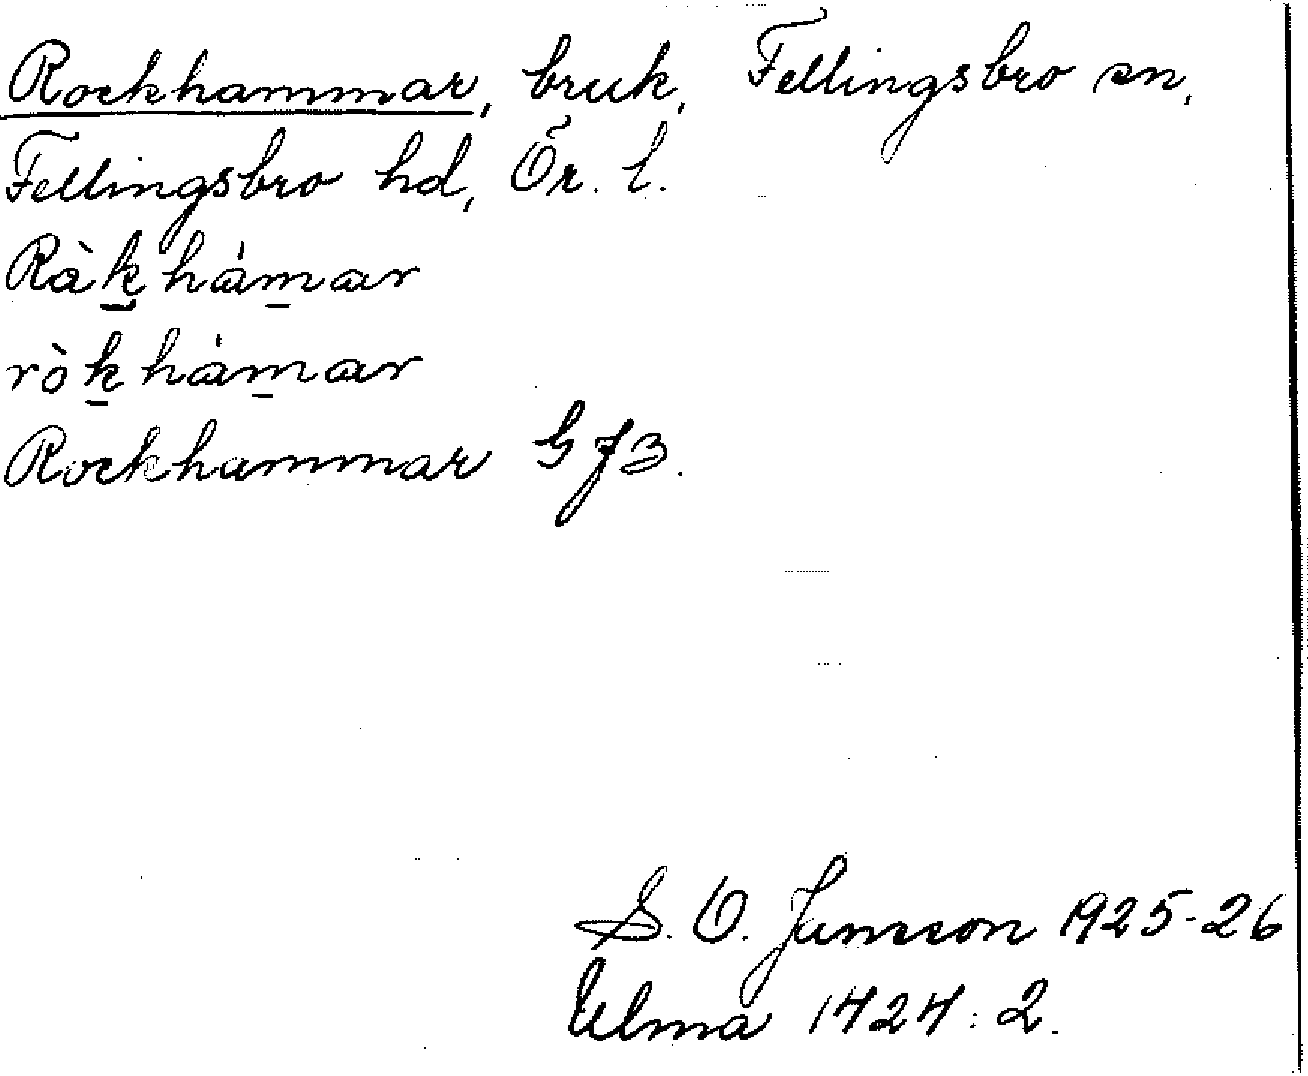 Rockhammar, bruk, Fellingsbro sn,
Fellingsbro hd, Ör. l.
Ràk̲hám̲ar
ròk̲hám̲ar
Rockhammar GJB.
S. O. Jansson 1925-26
Ulma 1424:2.